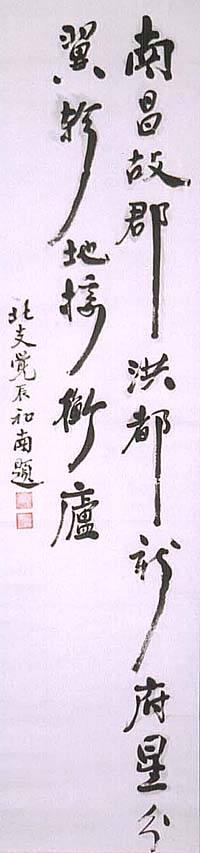 南昌故郡洪都新府星分
翼軫地接衡廬
北支覚辰和南題